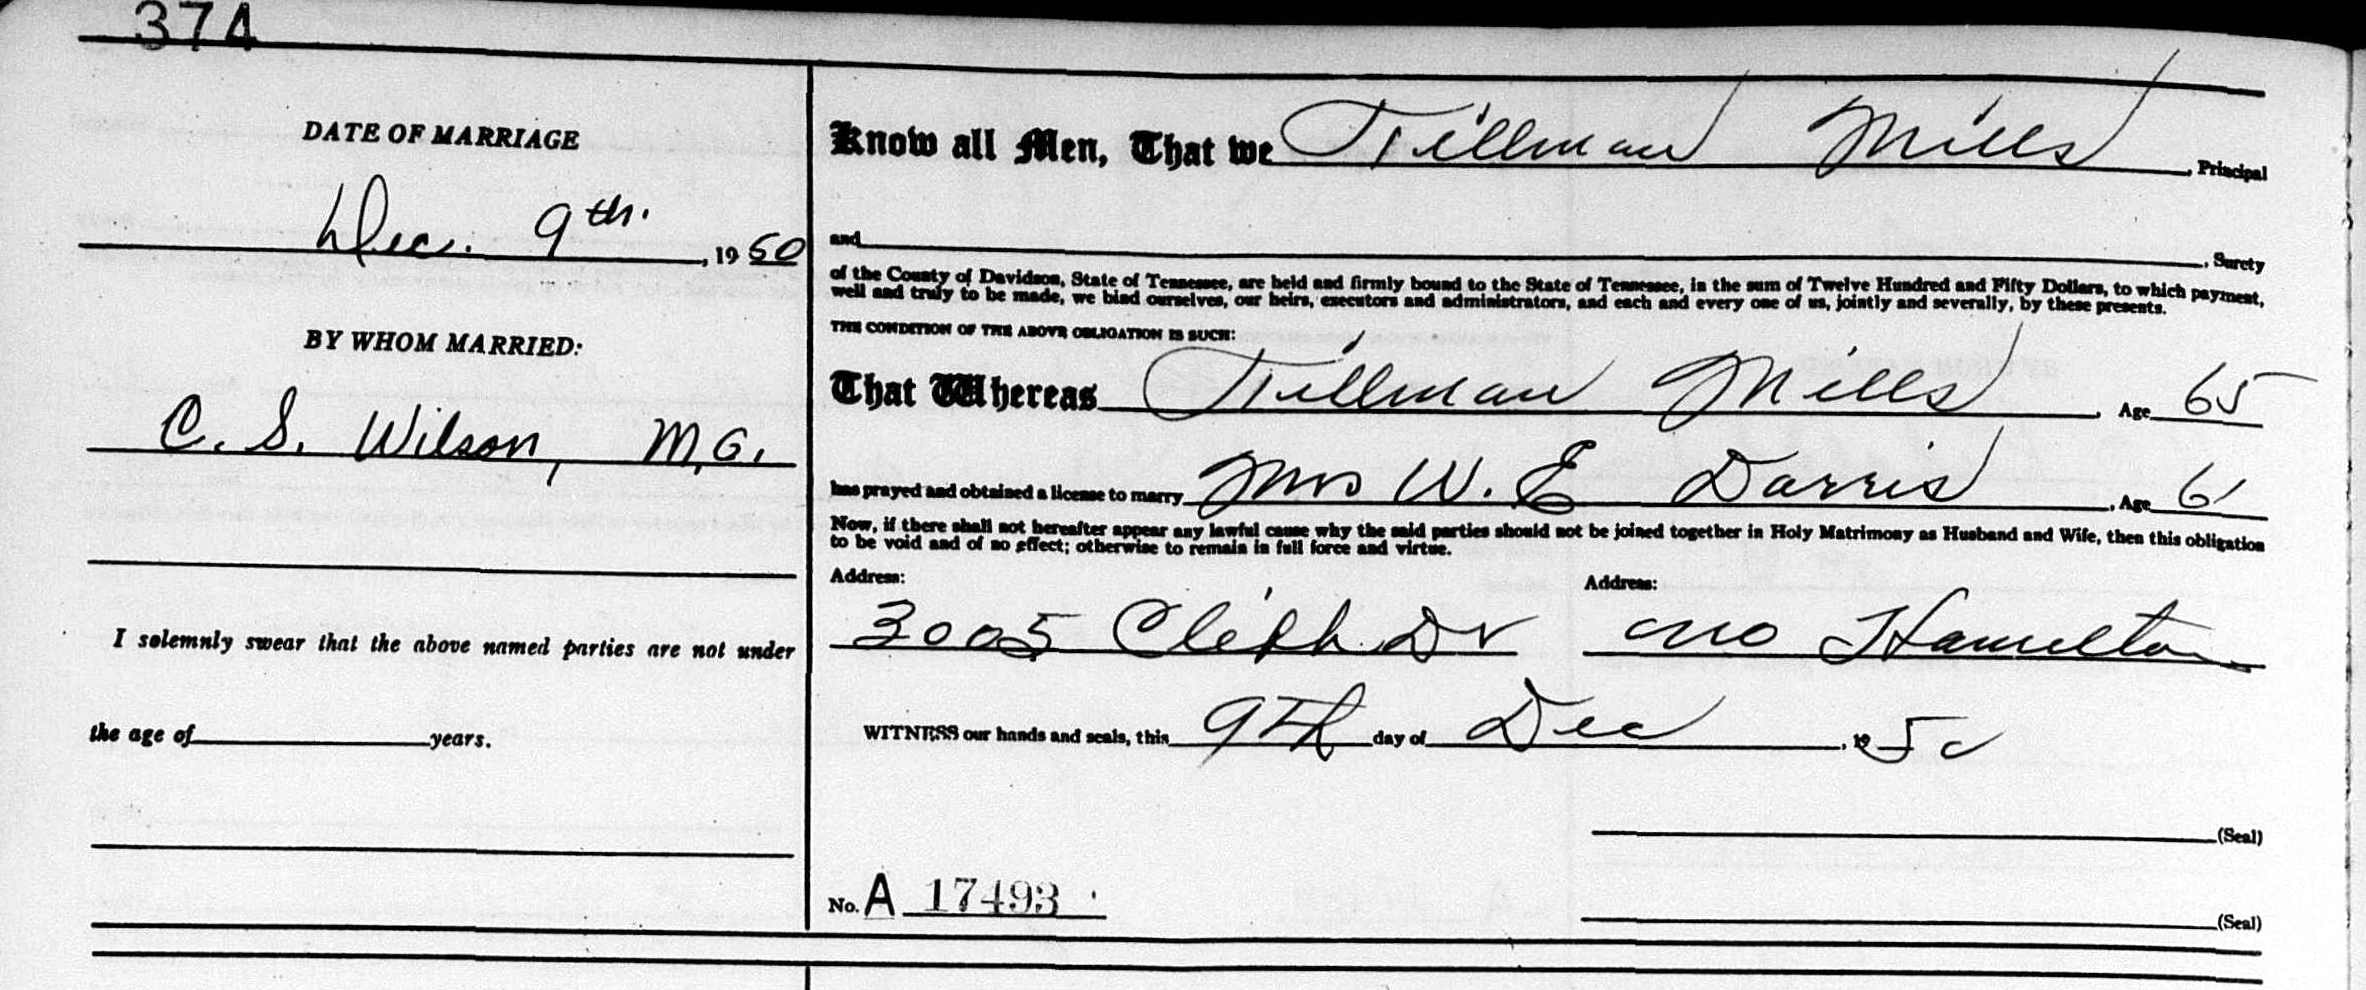 374
DATE OF MARRIAGE
Dec. 9th. , 1950
BY WHOM MARRIED:
C. S. Wilson, M.G.
I solemnly swear that the above named parties are not under
the age of years.
Know all Men, That we Tillman Mills , Principal
and , Surety
of the County of Davidson, State of Tennessee, are held and firmly bound to the State of Tennessee, in the sum of Twelve Hundred and Fifty Dollars, to which payment,
well and truly to be made, we bind ourselves, our heirs, executors and administrators, and each and every one of us, jointly and severally, by these presents.
THE CONDITION OF THE ABOVE OBLIGATION IS SUCH:
That Whereas Tillman Mills , Age 65
has prayed and obtained a license to marry Mrs W. E Darris , Age 61
Now, if there shall not hereafter appear any lawful cause why the said parties should not be joined together in Holy Matrimony as Husband and Wife, then this obligation
to be void and of no effect; otherwise to remain in full force and virtue.
Address: Address:
3005 Dr Hamilton
WITNESS our hands and seals, this 9th day of Dec , 1950
(Seal)
No. A 17493
(Seal)